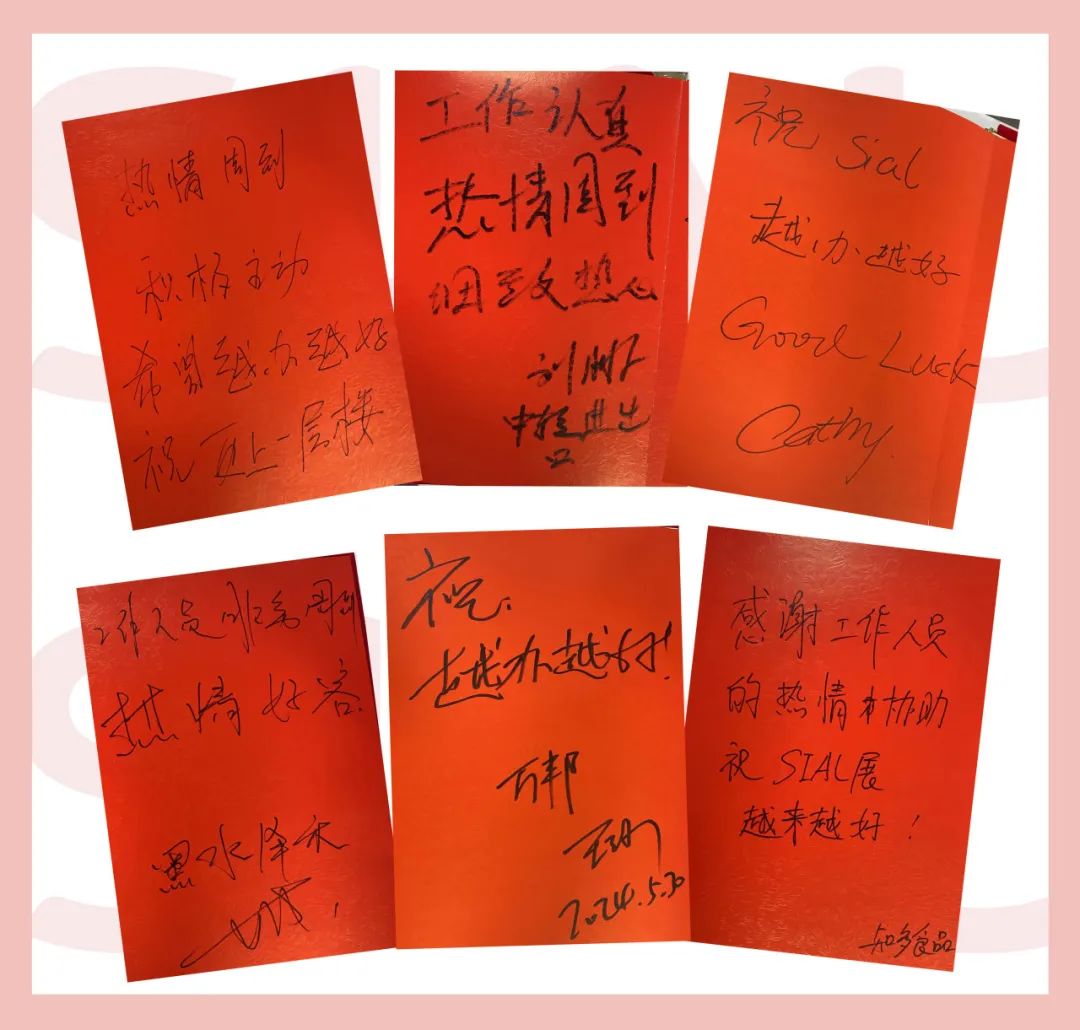 热情周到
积极主动
希望越办越好
祝更上一层楼
工作认真
热情周到
细致热心
刘
中 进出
口
祝 Sial
越办越好
Good Luck
Cathy
工作人员非常周到
热情好客
黑水泽禾
祝:
越办越好!
万邦
2024.5.30
感谢工作人员
的热情和协助
祝 SIAL展
越来越好!
知多食品